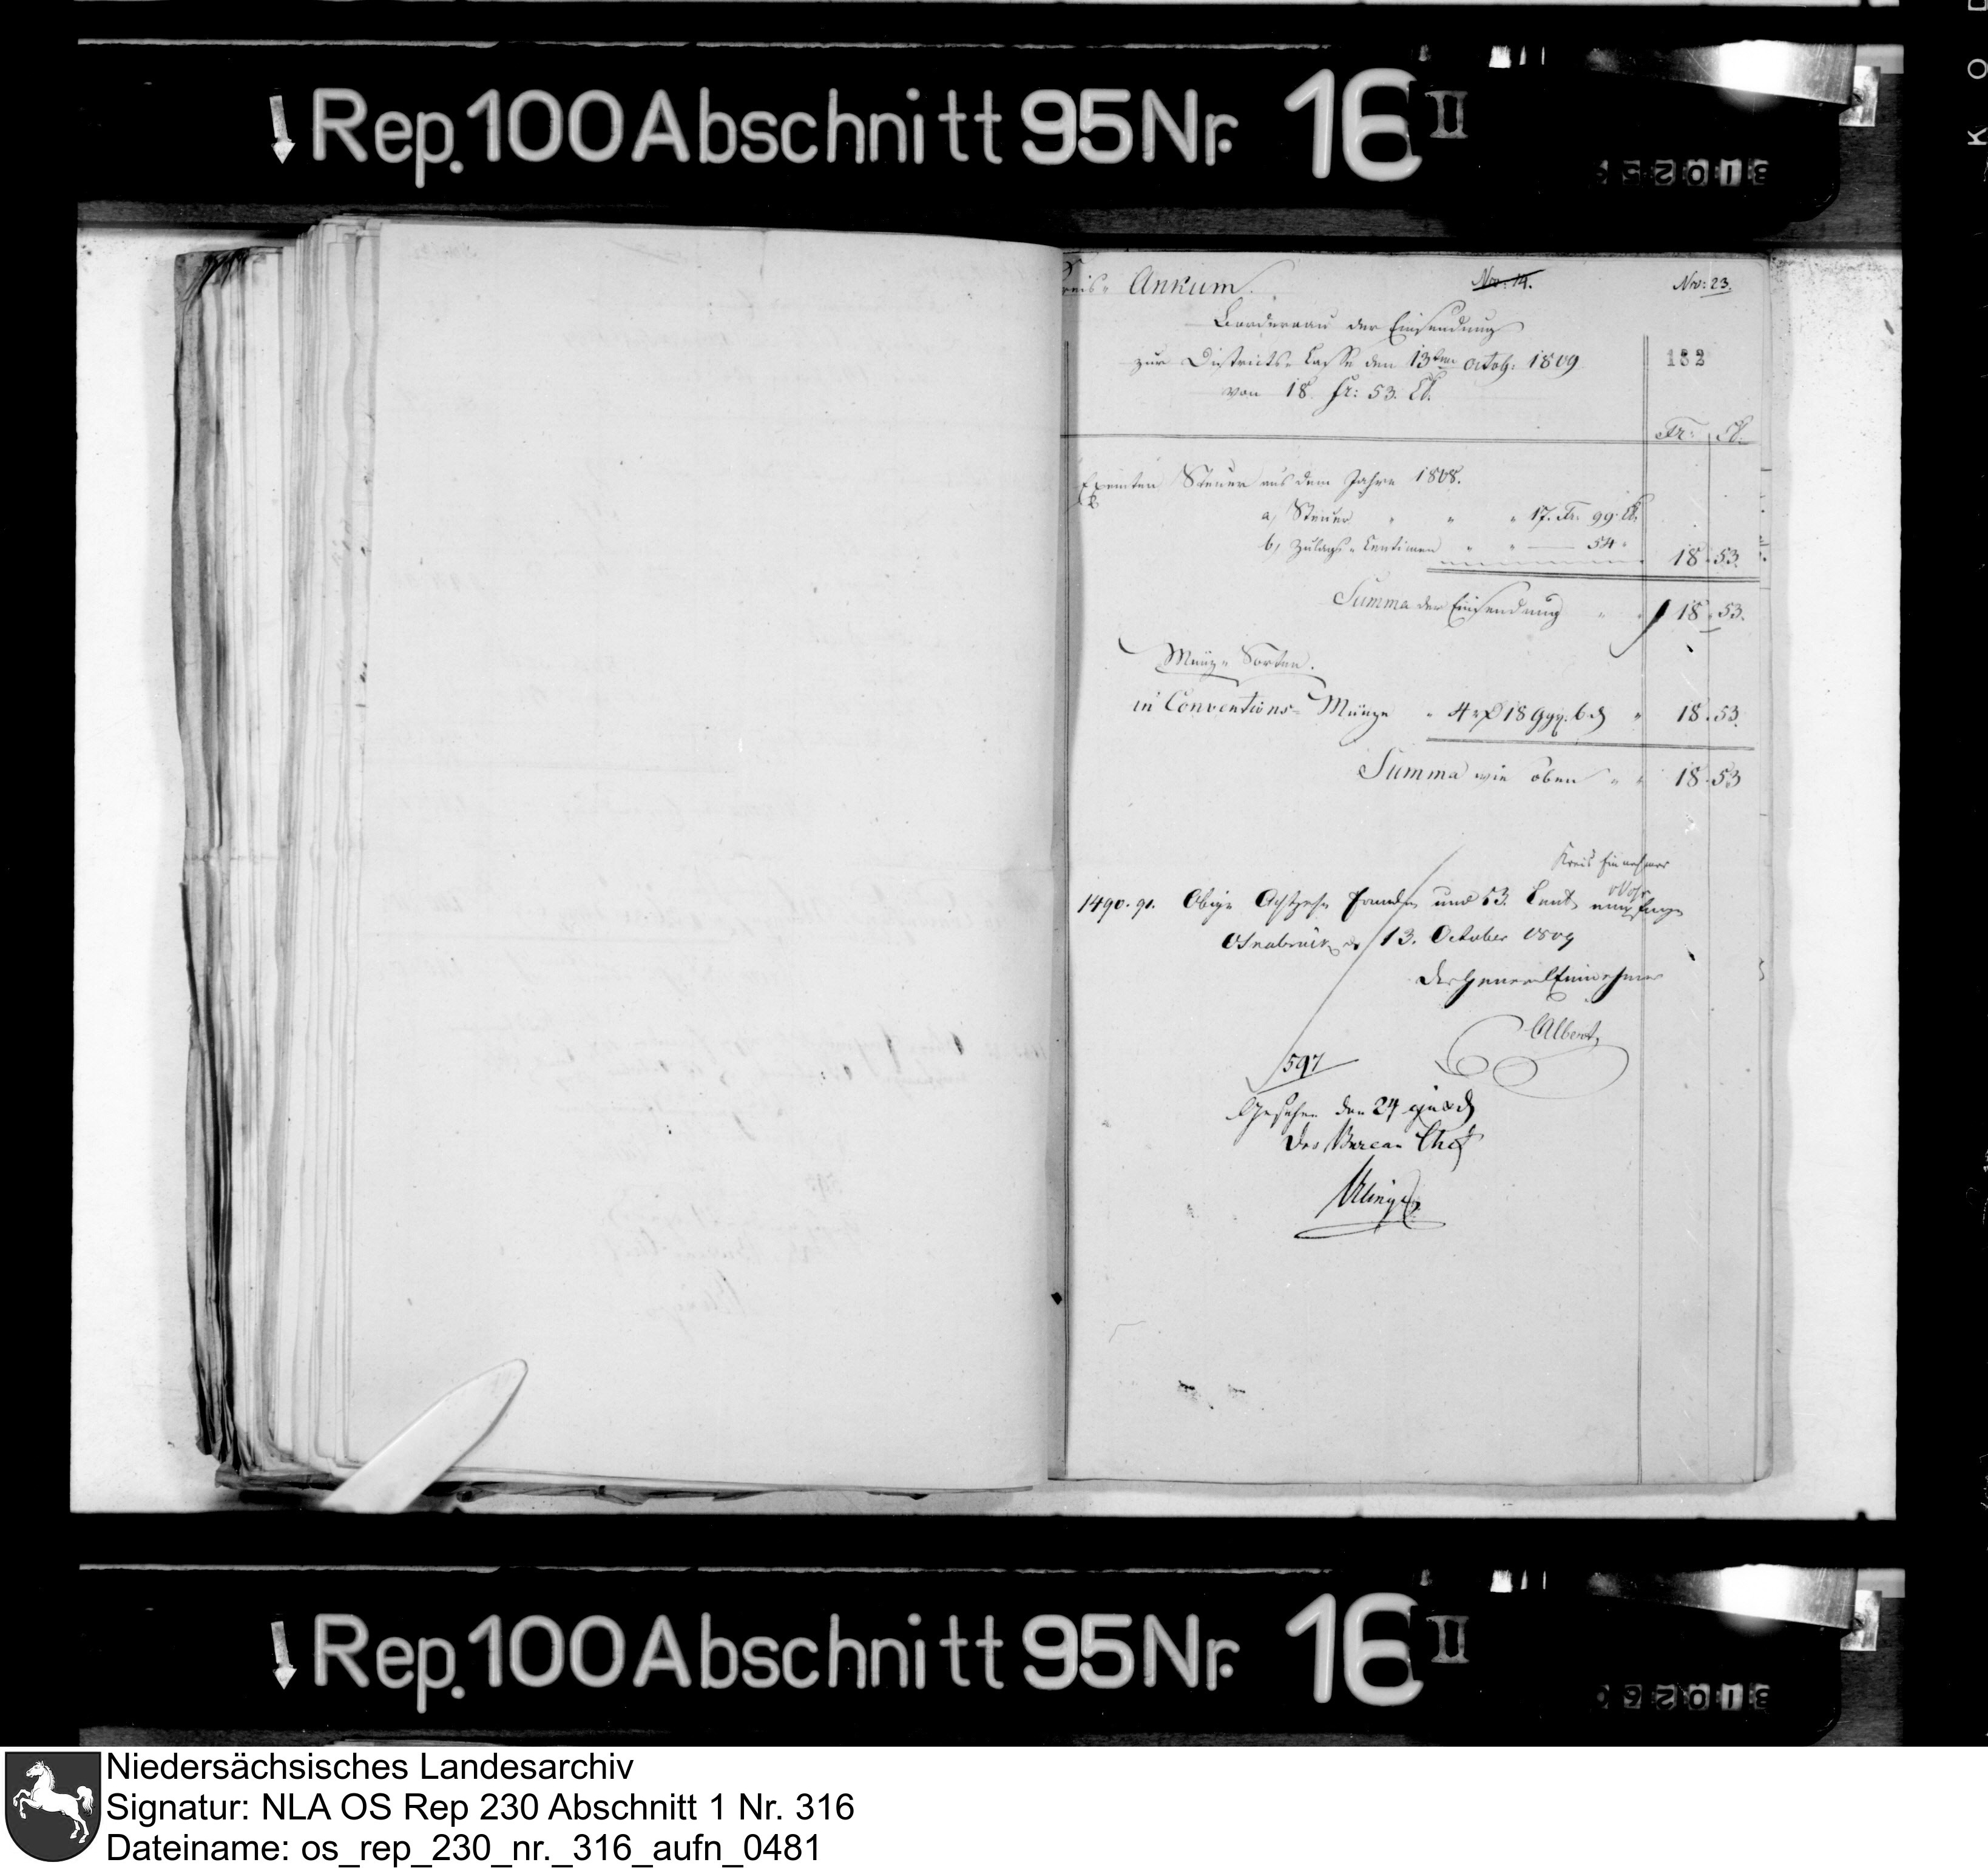 Rep. 100 Abschnitt 95 Nr. 16 II
Kreis Ankum.
Nro: 14.
Nro: 23.
Bordereau der Einsendung
zur Districts-Casse den 13ten Octob: 1809
182
von 18 fr: 53. Ct.
Fr: Ct.
Exemten Steuer aus dem Jahre 1808.
a, Steuer " " " 17. Fr. 99 Ct.
b, Zulags-Centimen " " — 54 " 18 . 53.
Summa der Einsendung " " 18 . 53.
Münz-Sorten.
in Conventions-Münze " 4 rß 18 ggr. 6 d " 18 . 53.
Summa wie oben " " 18 . 53
Kreis Einnehmer
1490. 91. Obige Achtzehn Franken und 53. Cent empfangen
Osnabrück d 13. October 1809
Der General Einnehmer
Albert
597
Gesehen den 24
Der Bureau Chef
Rep. 100 Abschnitt 95 Nr. 16 II
Niedersächsisches Landesarchiv
Signatur: NLA OS Rep 230 Abschnitt 1 Nr. 316
Dateiname: os_rep_230_nr._316_aufn_0481